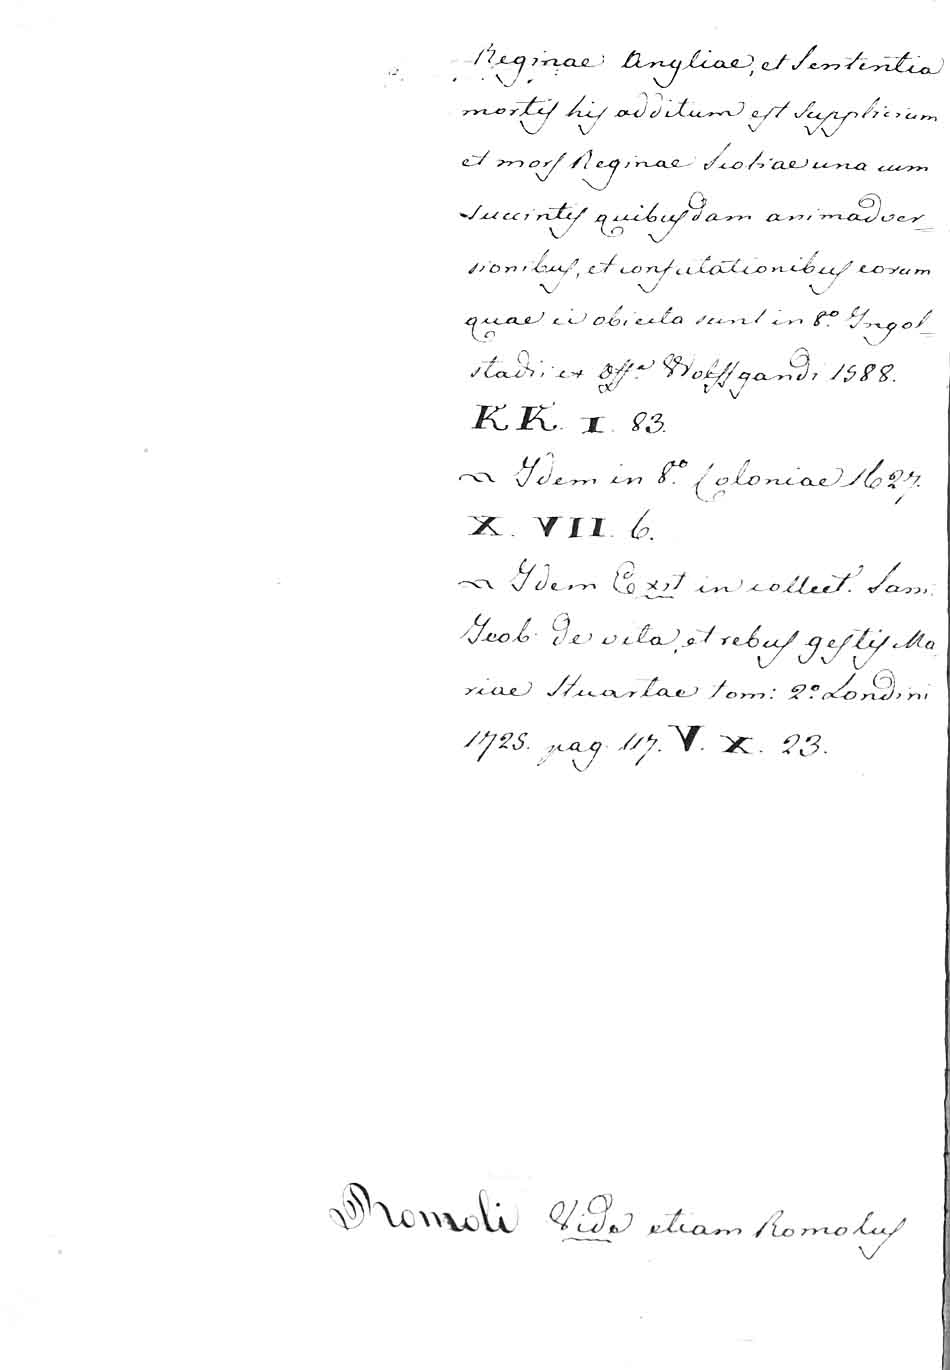 Reginae Angliae, et Sententia
mortis his additum est Supplicium
et mors Reginae Scotiae una cum
succintis quibusdam animadver=
sionibus, et confutationibus eorum
quae ei obiecta sunt in 8.º Ingol=
stadii ex Off.ª Wolffgandi 1588.
KK. I. 83.
~ Idem in 8.º Coloniae 1627.
X. VII. 6.
~ Idem Exit in collect. Sam:
Jeob. de vita, et rebus gestis Ma
riae Stuartae tom: 2.º Londini
1725. pag. 117. V. X. 23.
Romoli Vide etiam Romolus